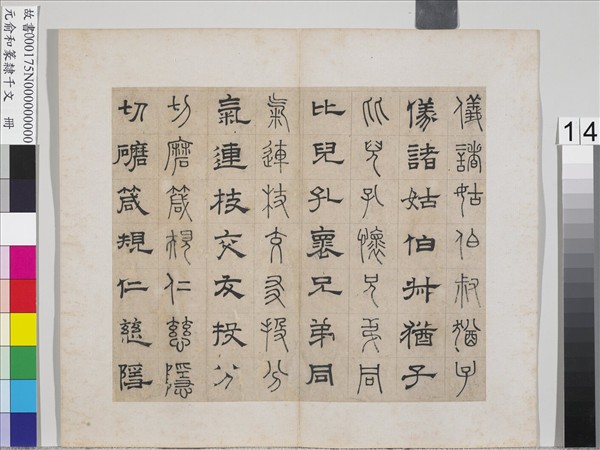 故書000175N000000000
元俞和篆隸千文　冊
14
儀諸姑伯叔猶子
儀諸姑伯叔猶子
比兒孔懷兄弟同
比兒孔褱兄弟同
氣連枝交友投分
氣連枝交友投分
切磨箴規仁慈隱
切磨箴規仁慈隱